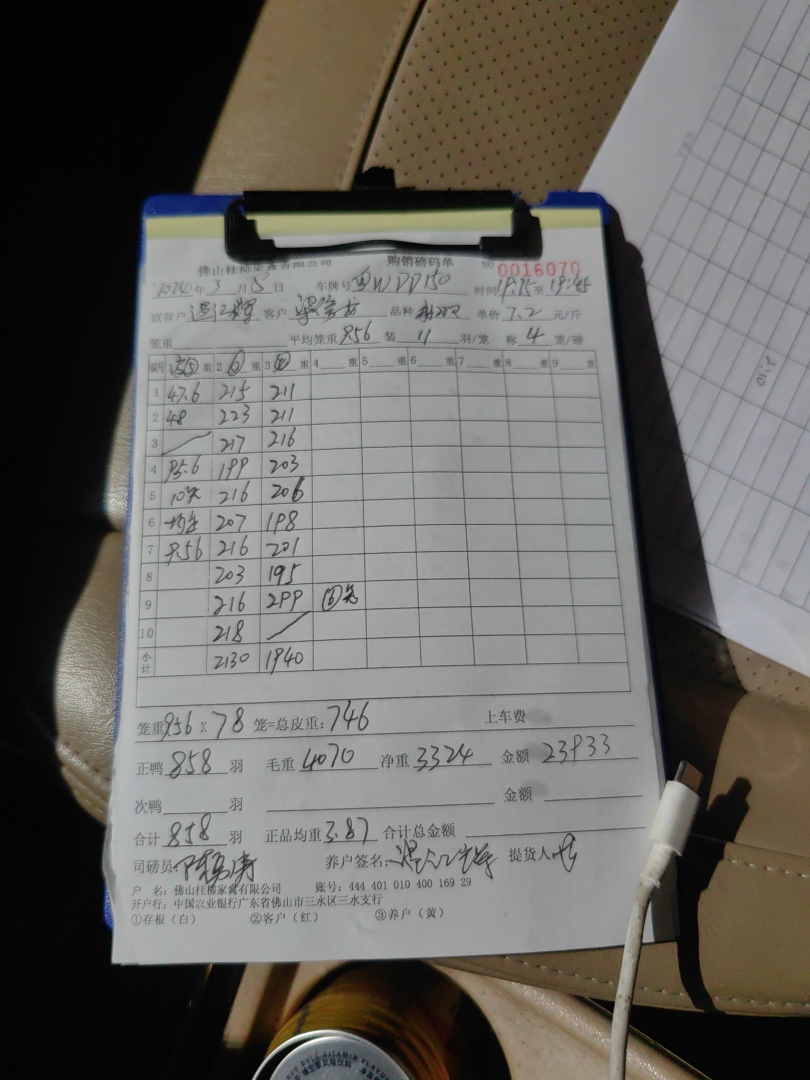 佛山桂柳家禽有限公司 购销磅码单 NO 0016070
年3月5日 车牌号 WDD150 时间 至 19:45
联养户 温江辉 客户 梁 品种 单价7.2元/斤
笼重 平均笼重9.56 装11羽/笼 称4笼/磅
编号 1 重 2 重 3 重 4 重 5 重 6 重 7 重 8 重 9 重
1 47.6 215 211
2 48 223 211
3 217 216
4 95.6 199 203
5 10只 216 206
6 均重 207 198
7 9.56 216 201
8 203 195
9 216 299 ⑥笼
10 218
小计 2130 1940
笼重9.56×78笼=总皮重:746 上车费
正鸭858羽 毛重4070 净重3324 金额23933
次鸭 羽 金额
合计858羽 正品均重3.87 合计总金额
司磅员 陈 养户签名:温江辉 提货人
户 名:佛山桂柳家禽有限公司 账号:444 401 010 400 169 29
开户行:中国农业银行广东省佛山市三水区三水支行
①存根(白) ②客户(红) ③养户(黄)
RED BULL VITAMIN FLAVOR